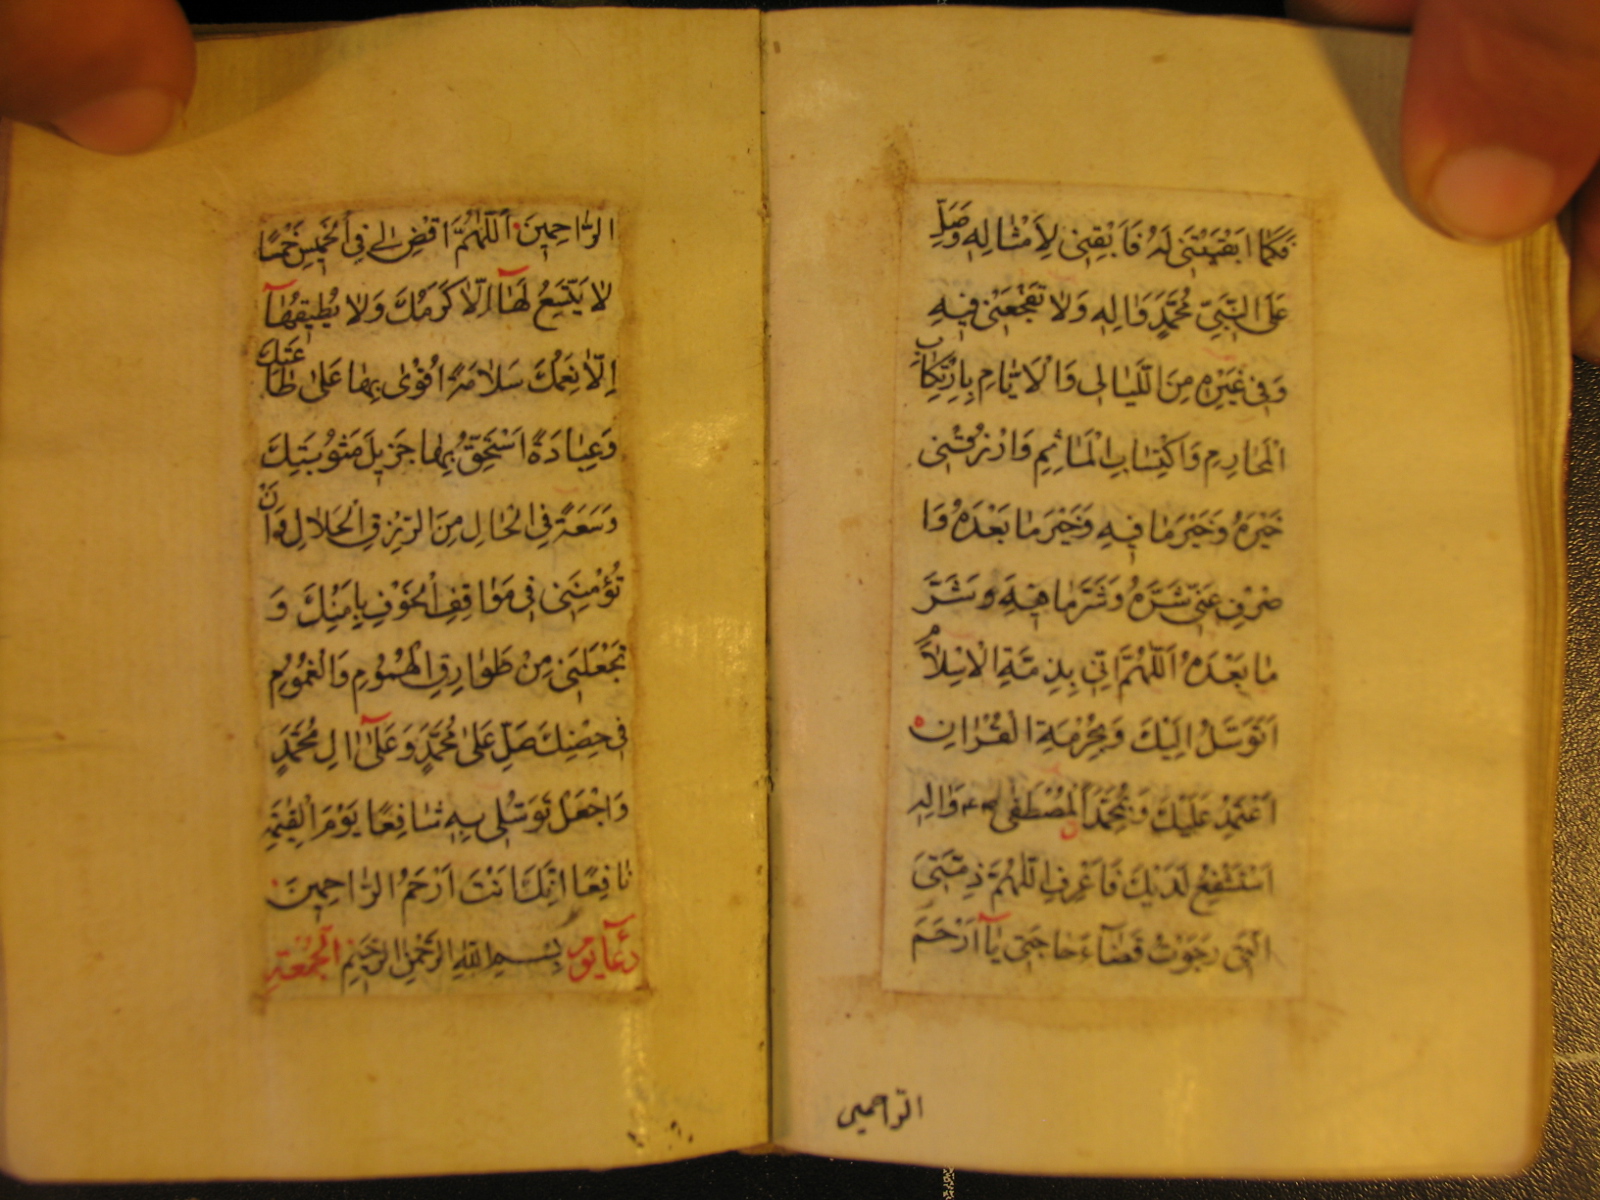 فَكَمَا اَبْقَيْتَنِي لَهُ فَاَبْقِنِي لِاَمْثَالِهِ وَصَلِّ
عَلَى النَّبِيِّ مُحَمَّدٍ وَاٰلِهِ وَلَا تَفْجَعْنِي فِيهِ
وَفِي غَيْرِهِ مِنَ اللَّيَالِي وَالْاَيَّامِ بِارْتِكَابِ
الْمَحَارِمِ وَاكْتِسَابِ الْمَاٰثِمِ وَارْزُقْنِي
خَيْرَهُ وَخَيْرَ مَا فِيهِ وَخَيْرَ مَا بَعْدَهُ وَا
صْرِفْ عَنِّي شَرَّهُ وَشَرَّ مَا فِيهِ وَشَرَّ
مَا بَعْدَهُ اَللّٰهُمَّ اِنِّي بِذِمَّةِ الْاِسْلَامِ
اَتَوَسَّلُ اِلَيْكَ وَبِحُرْمَةِ الْقُرْاٰنِ
اَعْتَمِدُ عَلَيْكَ وَبِمُحَمَّدٍ الْمُصْطَفٰى وَاٰلِهِ
اَسْتَشْفِعُ لَدَيْكَ فَاعْرِفِ اللّٰهُمَّ ذِمَّتِيَ
الَّتِي رَجَوْتُ قَضَاۤءَ حَاجَتِي يَاۤ اَرْحَمَ
الرّاحمين
الرَّاحِمِينَ اَللّٰهُمَّ اقْضِ لِي فِي الْخَمِيسِ خَمْسًا
لَا يَتَّسِعُ لَهَاۤ اِلَّا كَرَمُكَ وَلَا يُطِيقُهَاۤ
اِلَّا نِعَمُكَ سَلَامَةً اَقْوٰى بِهَا عَلٰى طَاعَتِكَ
وَعِبَادَةً اَسْتَحِقُّ بِهَا جَزِيلَ مَثُوبَتِكَ
وَسَعَةً فِي الْحَالِ مِنَ الرِّزْقِ الْحَلَالِ وَاَنْ
تُؤْمِنَنِي فِي مَوَاقِفِ الْخَوْفِ بِاَمْنِكَ وَ
تَجْعَلَنِي مِنْ طَوَارِقِ الْهُمُومِ وَالْغُمُومِ
فِي حِصْنِكَ صَلِّ عَلٰى مُحَمَّدٍ وَعَلٰۤى اٰلِ مُحَمَّدٍ
وَاجْعَلْ تَوَسُّلِي بِهِ شَافِعًا يَوْمَ الْقِيٰمَةِ
نَافِعًا اِنَّكَ اَنْتَ اَرْحَمُ الرَّاحِمِينَ
دُعَاۤءِ يَوْمِ بِسْمِ اللّٰهِ الرَّحْمٰنِ الرَّحِيْمِ الْجُمْعَةِ